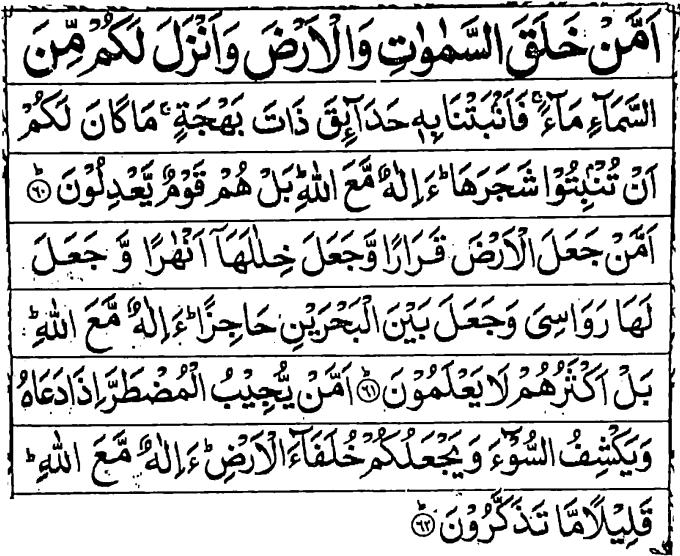 اَمَّنْ خَلَقَ السَّمٰوٰتِ وَالْاَرْضَ وَاَنْزَلَ لَكُمْ مِّنَ
السَّمَآءِ مَآءً ۚ فَاَنْۢبَتْنَا بِهٖ حَدَآئِقَ ذَاتَ بَهْجَةٍ ۚ مَا كَانَ لَكُمْ
اَنْ تُنْۢبِتُوْا شَجَرَهَا ؕ ءَاِلٰهٌ مَّعَ اللّٰهِ ؕ بَلْ هُمْ قَوْمٌ يَّعْدِلُوْنَ ؕ‏﴿۶۰﴾
اَمَّنْ جَعَلَ الْاَرْضَ قَرَارًا وَّجَعَلَ خِلٰلَهَاۤ اَنْهٰرًا وَّ جَعَلَ
لَهَا رَوَاسِىَ وَجَعَلَ بَيْنَ الْبَحْرَيْنِ حَاجِزًا ؕ ءَاِلٰهٌ مَّعَ اللّٰهِ ؕ
بَلْ اَكْثَرُهُمْ لَا يَعْلَمُوْنَ ؕ‏﴿۶۱﴾ اَمَّنْ يُّجِيْبُ الْمُضْطَرَّ اِذَا دَعَاهُ
وَيَكْشِفُ السُّوْٓءَ وَيَجْعَلُكُمْ خُلَفَآءَ الْاَرْضِ ؕ ءَاِلٰهٌ مَّعَ اللّٰهِ ؕ
قَلِيْلًا مَّا تَذَكَّرُوْنَ ؕ‏﴿۶۲﴾